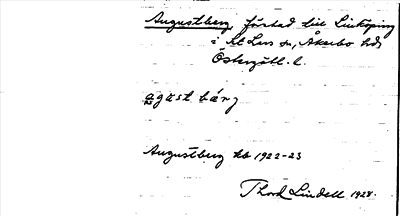 Augustberg förstad till Linköping
i St Lars sn, Åkerbo hd,
Östergötl. l.
agust bärj
Augustberg kb 1922-23
Thord Lindell 1928.